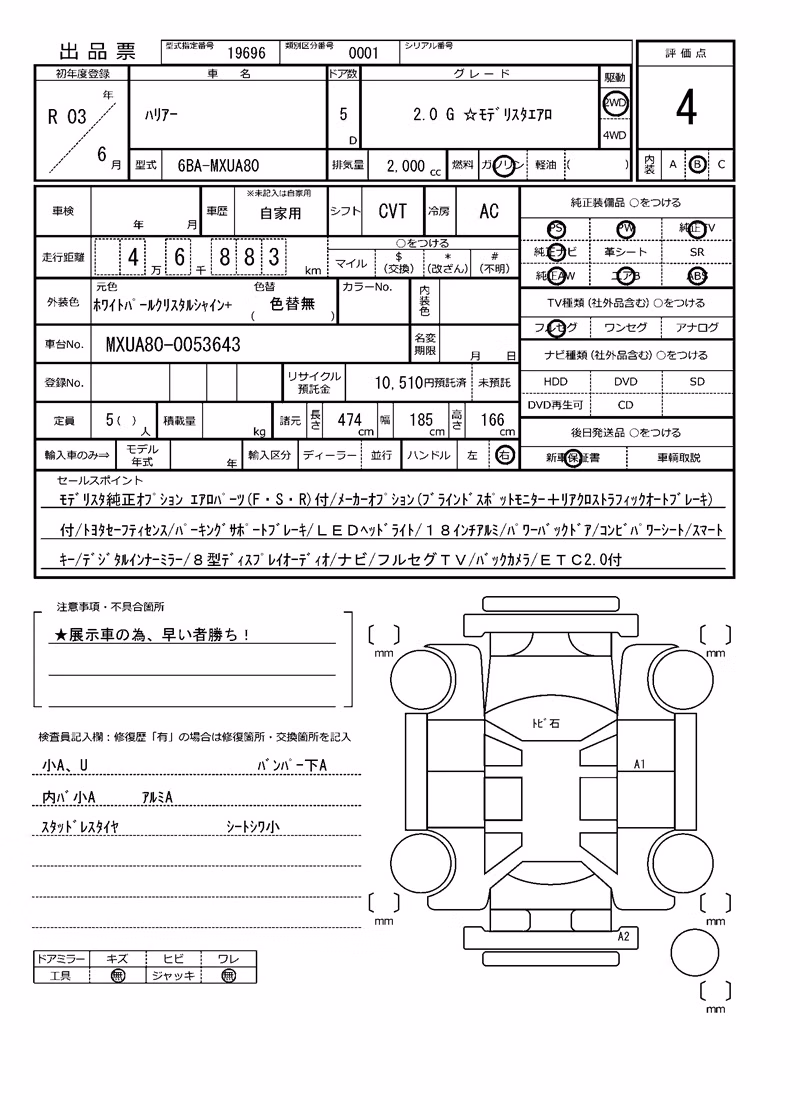 出品票 型式指定番号 19696 類別区分番号 0001 シリアル番号
評価点
初年度登録 車名 ドア数 グレード 駆動
R 03 年 6 月 ﾊﾘｱｰ 5 D 2.0 G ☆ﾓﾃﾞﾘｽﾀｴｱﾛ 2WD 4WD
4
型式 6BA-MXUA80 排気量 2,000 cc 燃料 ガソリン 軽油 ( )
内装 A B C
車検 年 月 車歴 ※未記入は自家用 自家用 シフト CVT 冷房 AC
走行距離 4 万 6 千 8 8 3 km
○をつける
マイル $ (交換) * (改ざん) # (不明)
外装色 元色 ﾎﾜｲﾄﾊﾟｰﾙｸﾘｽﾀﾙｼｬｲﾝ+ 色替 ( 色替無 ) カラーNo. 内装色
車台No. MXUA80-0053643 名変期限 月 日
登録No. リサイクル預託金 10,510円預託済 未預託
定員 5( ) 人 積載量 kg 諸元 長さ 474 cm 幅 185 cm 高さ 166 cm
輸入車のみ⇒ モデル年式 年 輸入区分 ディーラー 並行 ハンドル 左 右
純正装備品 ○をつける
PS PW 純正TV
純正ナビ 革シート SR
純正AW エアB ABS
TV種類(社外品含む)○をつける
フルセグ ワンセグ アナログ
ナビ種類(社外品含む)○をつける
HDD DVD SD
DVD再生可 CD
後日発送品 ○をつける
新車保証書 車輌取説
セールスポイント
ﾓﾃﾞﾘｽﾀ純正ｵﾌﾟｼｮﾝ ｴｱﾛﾊﾟｰﾂ(F・S・R)付/ﾒｰｶｰｵﾌﾟｼｮﾝ(ﾌﾞﾗｲﾝﾄﾞｽﾎﾟｯﾄﾓﾆﾀｰ＋ﾘｱｸﾛｽﾄﾗﾌｨｯｸｵｰﾄﾌﾞﾚｰｷ)
付/ﾄﾖﾀｾｰﾌﾃｨｾﾝｽ/ﾊﾟｰｷﾝｸﾞｻﾎﾟｰﾄﾌﾞﾚｰｷ/ＬＥＤﾍｯﾄﾞﾗｲﾄ/１８ｲﾝﾁｱﾙﾐ/ﾊﾟﾜｰﾊﾞｯｸﾄﾞｱ/ｺﾝﾋﾞﾊﾟﾜｰｼｰﾄ/ｽﾏｰﾄ
ｷｰ/ﾃﾞｼﾞﾀﾙｲﾝﾅｰﾐﾗｰ/８型ﾃﾞｨｽﾌﾟﾚｲｵｰﾃﾞｨｵ/ナビ/フルセグＴＶ/ﾊﾞｯｸｶﾒﾗ/ＥＴＣ2.0付
注意事項・不具合箇所
★展示車の為、早い者勝ち！
検査員記入欄：修復歴「有」の場合は修復箇所・交換箇所を記入
小A、U ﾊﾞﾝﾊﾟｰ下A
内ﾊﾞ小A ｱﾙﾐA
ｽﾀｯﾄﾞﾚｽﾀｲﾔ ｼｰﾄｼﾜ小
ドアミラー キズ ヒビ ワレ
工具 無 ジャッキ 無
mm mm
ﾄﾋﾞ石
A1
mm mm
A2
mm